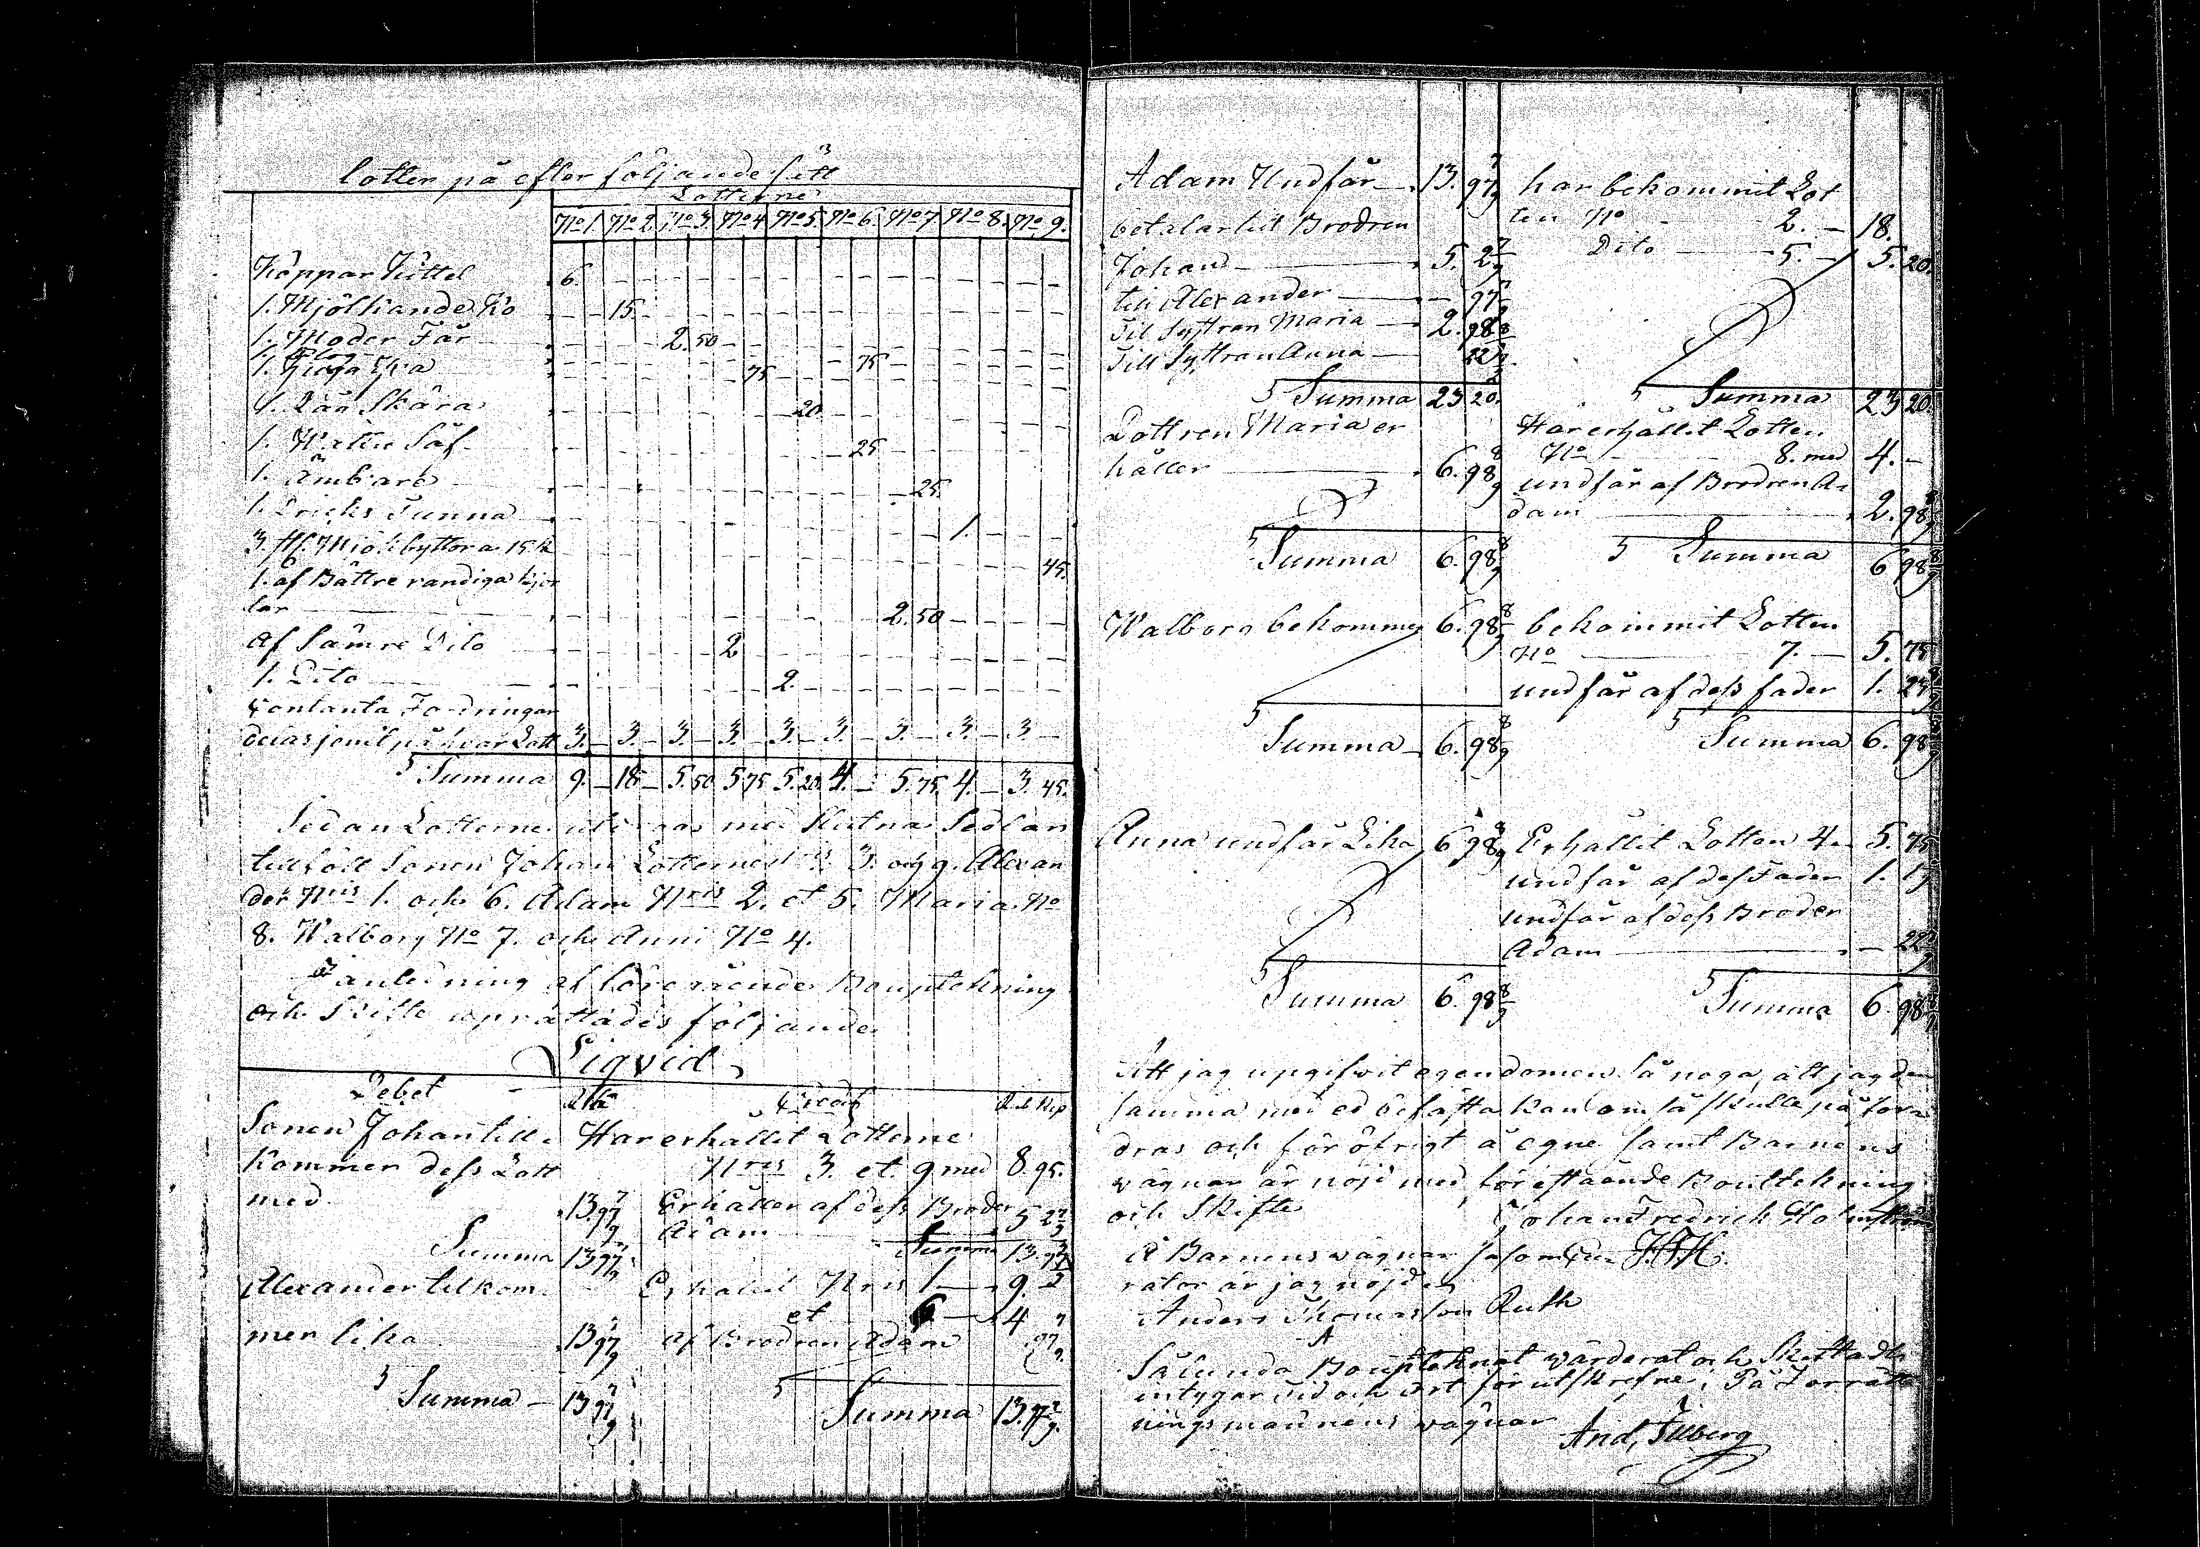 lotter på efter följande sätt
Lotterne
No 1. No 2. No 3. No 4. No 5. No 6. No 7. No 8. No 9.
Koppar Kittel 6.
1. Mjölkande Ko 15.
1. Moder Får 2. 50
1. Plog 75
1. 75
1. Lån Skära 20
1. Watten Såf 25
1. Ämbare 25.
1. Dricks Tunna 1.
3. st. Mjölkbyttor a 15 k 45.
1. af Bättre randiga kjor
lar 2. 50
af Sämre Dito 2
1. Dito 2.
Contanta Fordringar
delas jemt på hvar Lott 3. 3. 3. 3. 3. 3. 3. 3. 3
Summa 9. 18 5. 50 5 75 5. 20 4. 5. 75. 4. 3. 45.
Sedan Lotterne med Slutna Sedlar
tillföll Sonen Johan Lotterne Nris 3. och 9. Alexan
der Nris 1. och 6. Adam Nris 2. et 5. Maria No
8. Walborg No 7. och Anni No 4.
I anledning af Bouptekning
och Skifte uprättades följande
Liqvid
Debet Credit Rub Kop
Sonen Johan till Har erhållit Lotterne
kommer dess Lott Nris 3. et. 9 med 8. 95.
med 13. 97 7/9 Erhåller af dess Broder
Adam 5 2 7/9
Summa 13 97 7/9 Summa 13. 97 7/9
Alexander tilkom Erhållit Nris 1 9.
et 6 4
mer lika 13 97 7/9 af Brodren Adam 97 7/9
Summa 13 97 7/9 Summa 13. 97 7/9
Adam Undfår 13. 97 7/9 har bekommit Lot
ten No 2. 18.
betalar till Brodren
Dito 5. 5. 20.
Johan 5. 2 7/9
till Alexander 97 7/9
Till Systran Maria 2. 98 8/9
Till Systran Anna 22 2/9
Summa 23 20. Summa 23 20.
Dottren Maria er Har erhållit Lotten
håller 6. 98 8/9 No 8. med 4.
undfår af Brodren A
dam 2. 98 8/9
Summa 6. 98 8/9 Summa 6 98 8/9
Walborg bekommer 6. 98 8/9 bekommit Lotten
No 7. 5. 75
undfår af dess fader 1. 23 8/9
Summa 6. 98 8/9 Summa 6. 98 8/9
Anna undfår Lika 6 98 8/9 Erhållit Lotten 4. 5. 75
undfår af dess Fader 1. 1
undfår af dess Broder
Adam 22 2/9
Summa 6. 98 8/9 Summa 6 98 8/9
Att jag upgifvit egendomen så noga, att jag den
samma med ed befästa kan om så skulle på ford
dras och för öfrigt å egne samt Barnens
vägnar är nöjd med föreståënde Bouptekning
och Skifte Johan Fredrich Holmström
Å Barnens vägnar såsom Cu J.F.H.
rator är jag nöjd
Anders Thomasson Ruth
A
Sålunda Bouptecknat värderat och Skiftadt
intygar tid och ort för utskrefne. På Förrätt
ningsmannens vägnar
And, Filberg